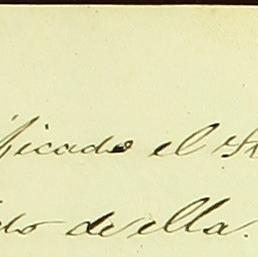 ficado el
do de ella.